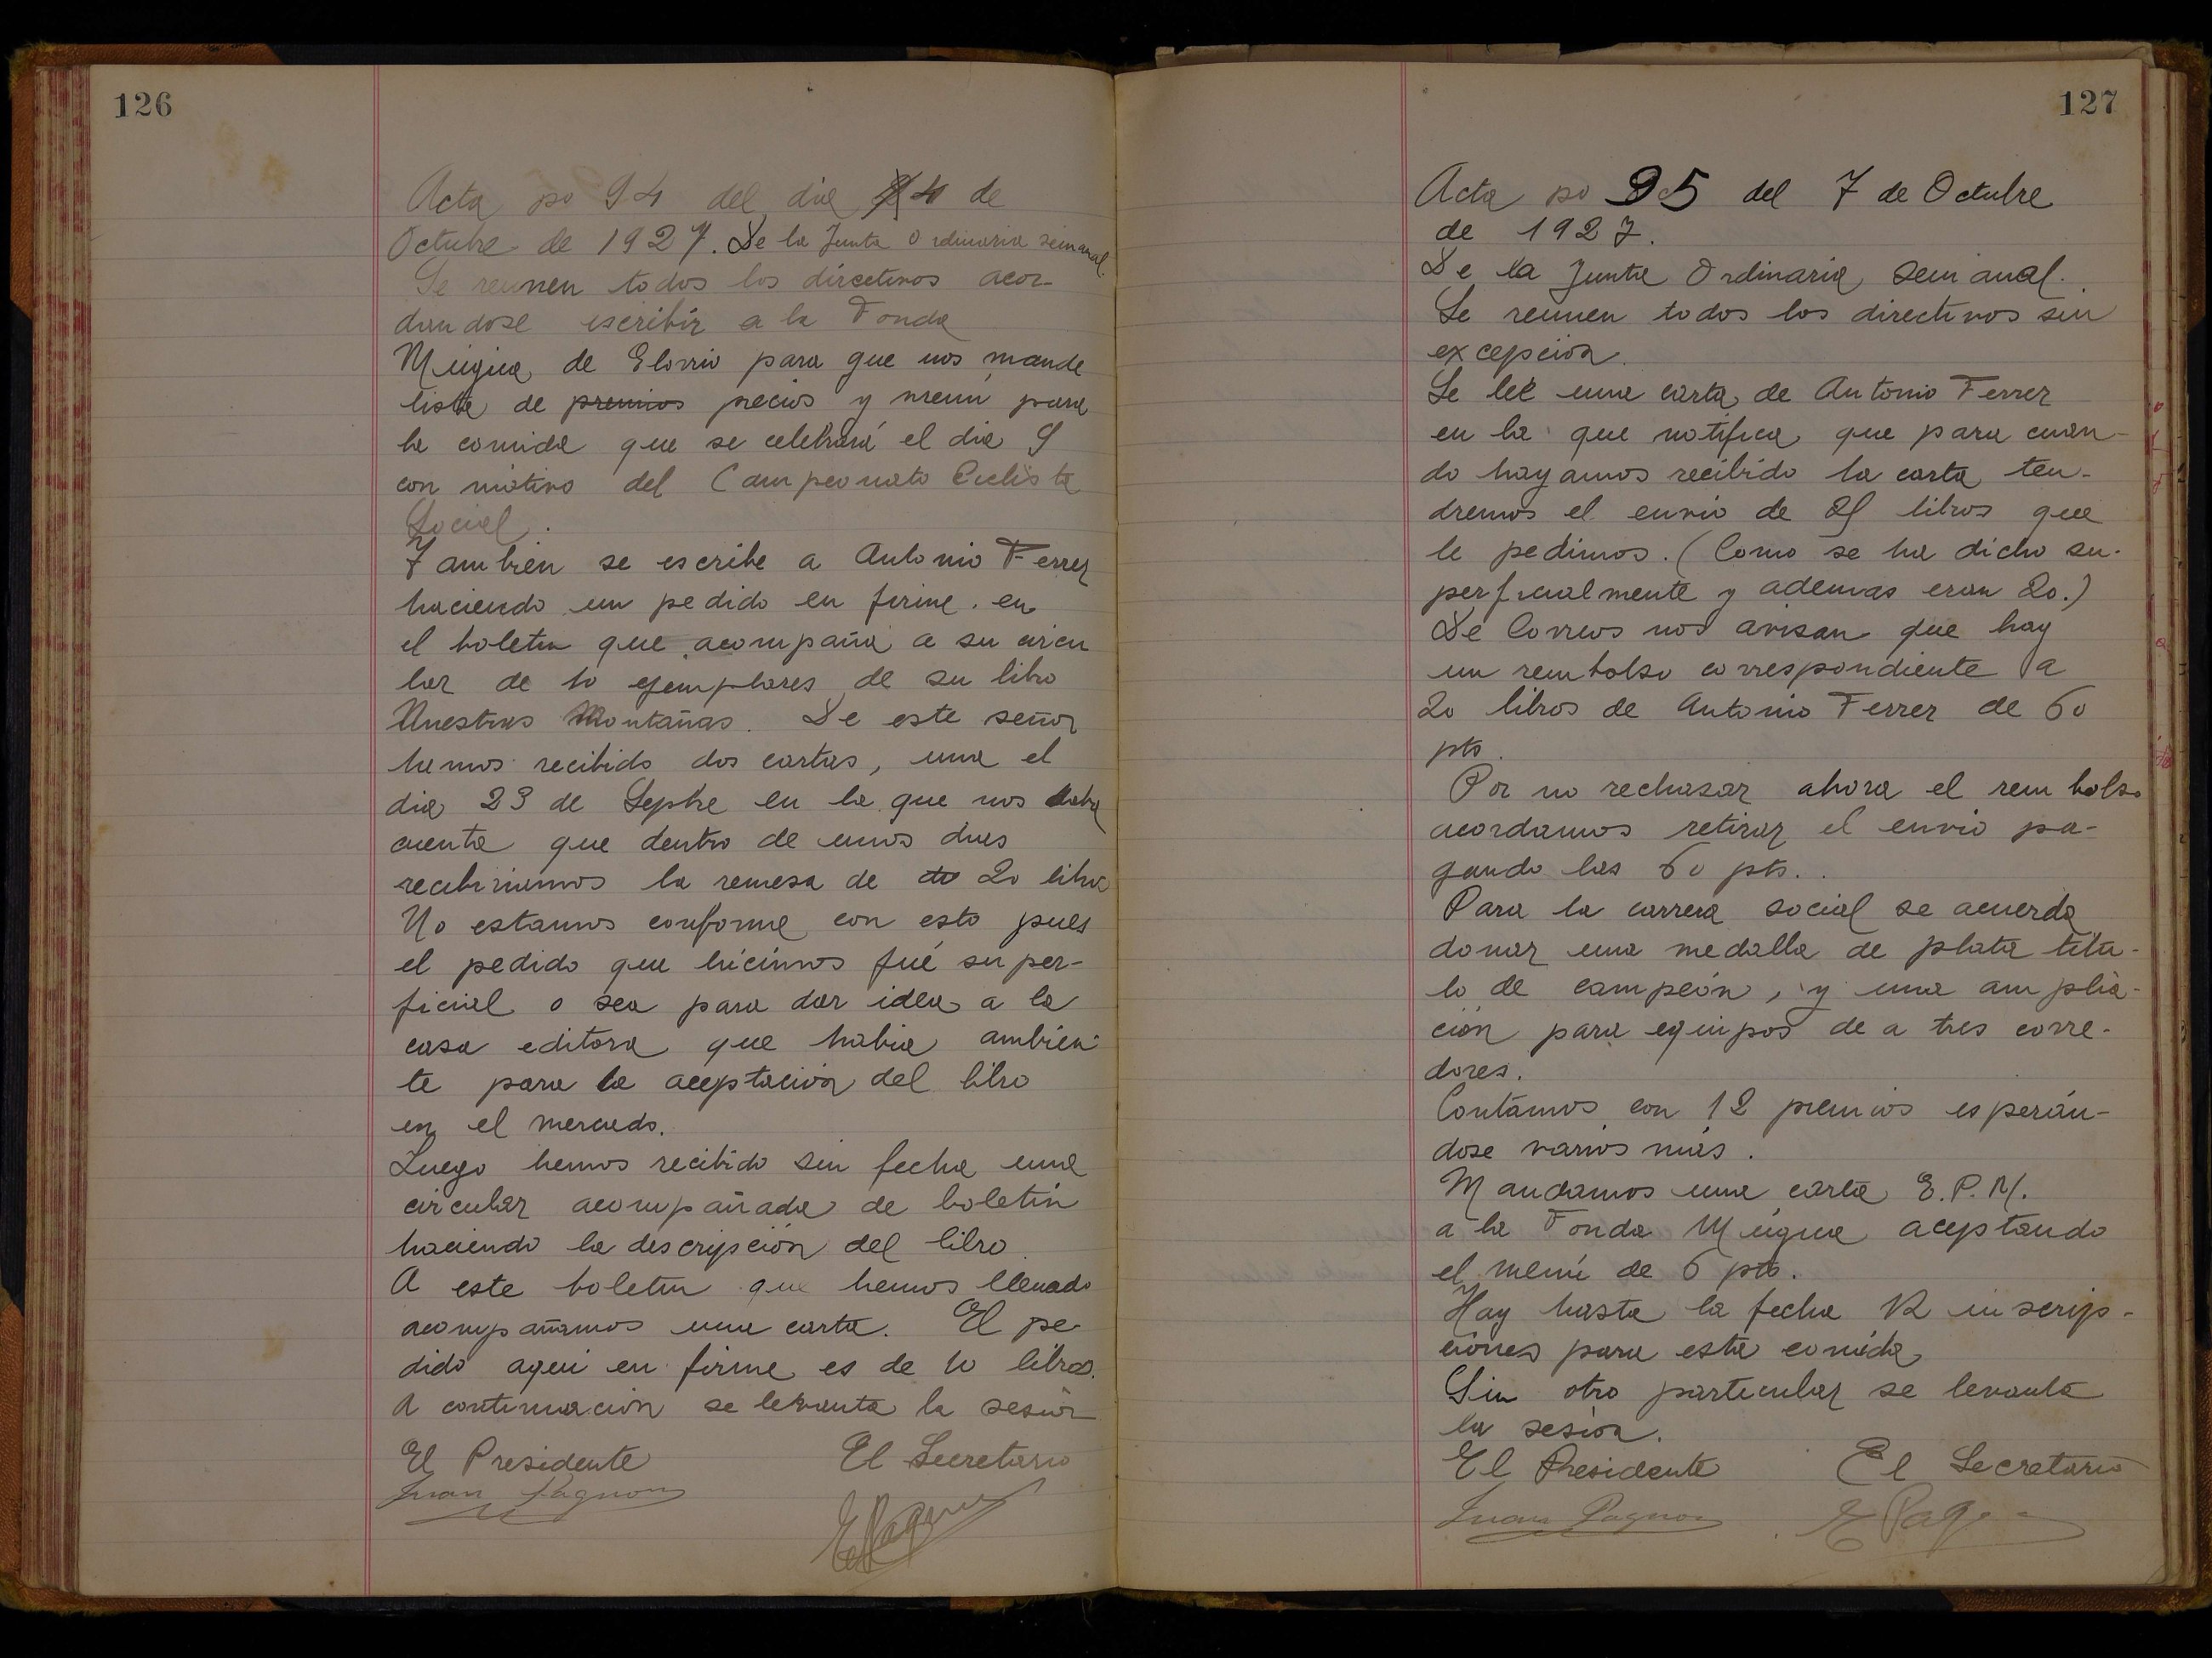 126
Acta no 94 del dia 4 de
Octubre de 1927. De la Junta Ordinaria semanal.
Se reunen todos los directivos acor-
dandose escribir a la Fonda
Mugica de Elorrio para que nos mande
lista de premios precios y menú para
la comida que se celebrará el dia 9
con motivo del Campeonato Ciclista
Social.
Tambien se escribe a Antonio Ferrer
haciendo un pedido en firme en
el boletin que acompaña a su circu
lar de 10 ejemplares de su libro
Nuestras Montañas. De este señor
hemos recibido dos cartas, una el
dia 23 de Sepbre en la que nos daba
cuenta que dentro de unos dias
recibiriamos la remesa de 20 libros
No estamos conforme con esto pues
el pedido que hicimos fué super-
ficial o sea para dar idea a la
casa editora que habia ambien-
te para la aceptacion del libro
en el mercado.
Luego hemos recibido sin fecha una
circular acompañada de boletin
haciendo la descripción del libro.
A este boletin que hemos llenado
acompañamos una carta. El pe-
dido aqui en firme es de 10 libros.
A continuacion se levanta la sesion
El Presidente El Secretario
Juan Pagnon
127
Acta no 95 del 7 de Octubre
de 1927.
De la Junta Ordinaria semanal.
Se reunen todos los directivos sin
excepcion.
Se leé una carta de Antonio Ferrer
en la que notifica que para cuan-
do hayamos recibido la carta ten-
dremos el envio de libros que
le pedimos. (Como se ha dicho su-
perficialmente y ademas eran 20.)
De Correos nos avisan que hay
un rembolso correspondiente a
20 libros de Antonio Ferrer de 60
pts.
Por no rechasar ahora el rembolso
acordamos retirar el envio pa-
gando las 60 pts..
Para la carrera social se acuerda
donar una medalla de plata titu-
lo de campeón, y una amplia-
ción para equipos de a tres corre-
dores.
Contamos con 12 premios esperán-
dose varios más.
Mandamos una carta E.P.M.
a la Fonda Mugica aceptando
el menú de 6 pts.
Hay hasta la fecha 12 inscrip-
ciones para esta comida
Sin otro particular se levanta
la sesion.
El Presidente El Secretario
Juan Pagnon